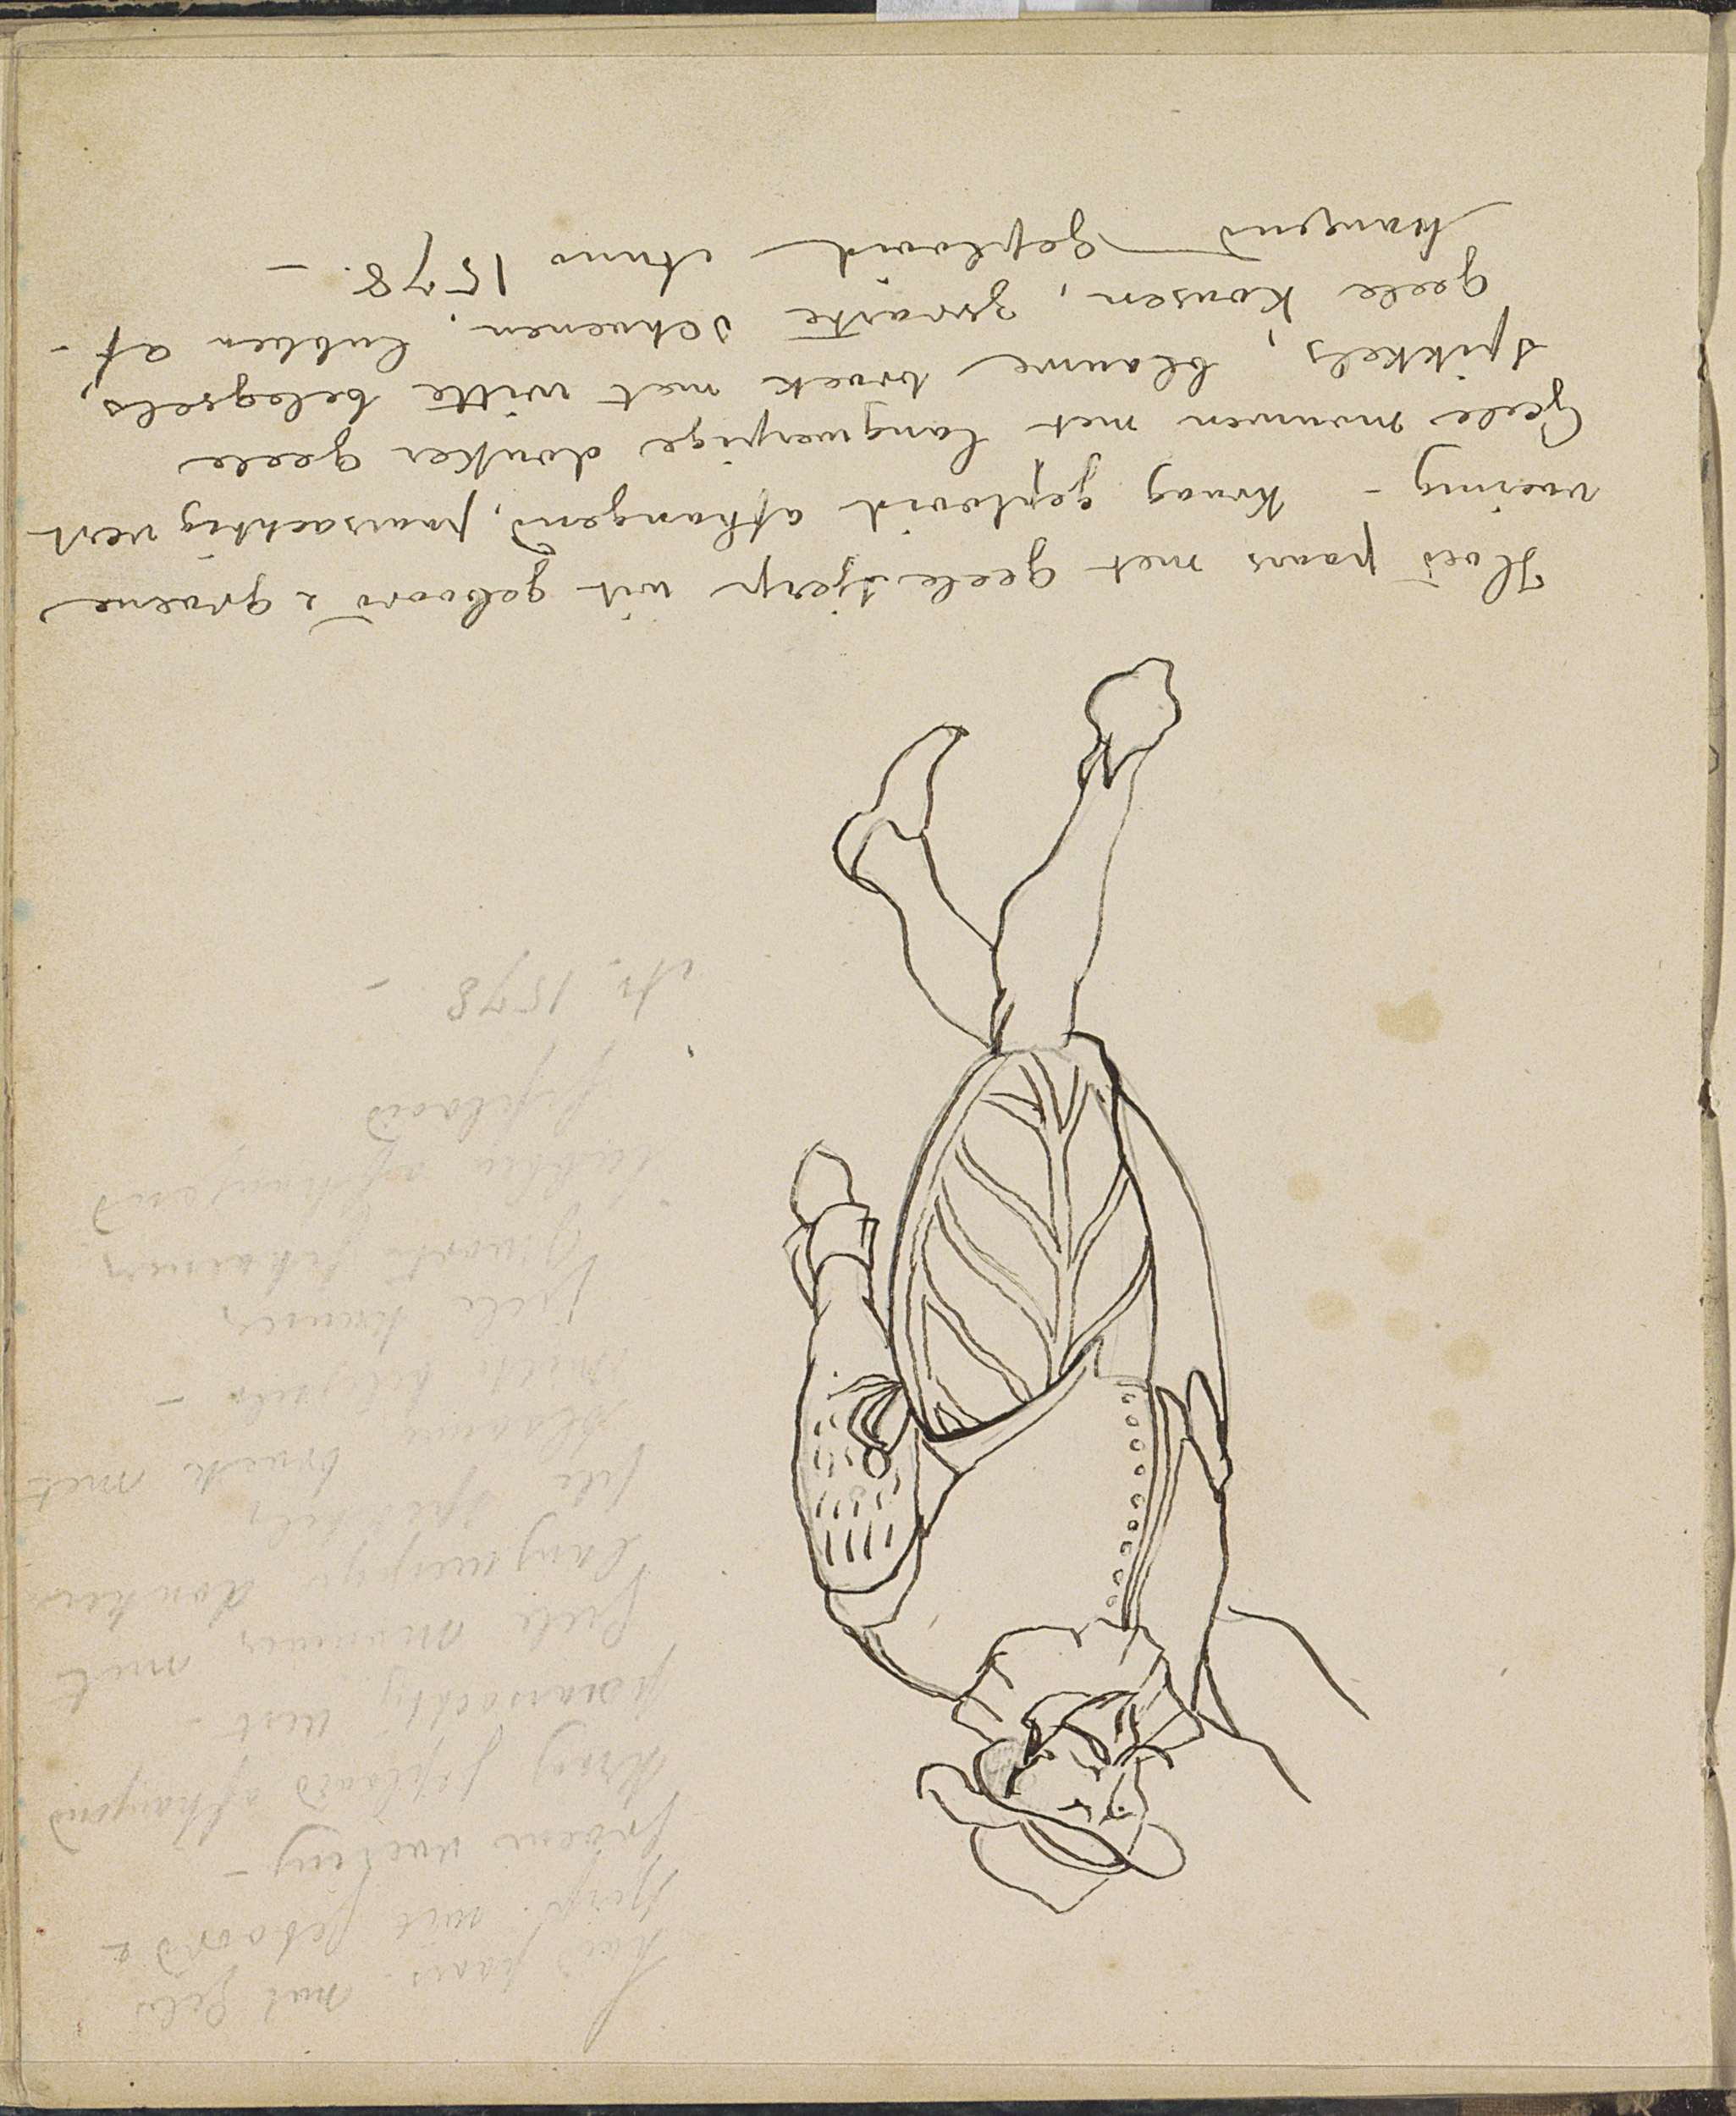 hoed paars. met gele
sjerp. wit geboord &
groene voering -
Kraag geplooid afhangend
paarsachtig vest -
gele mouwen met
langwerpige donker
gele spikkels
blauwe broek met
witte belegsels -
gele kousen,
zwarte schoenen,
lubben afhangend
geplooid
Ao. 1578 -
Hoed paars met geele sjerp wit geboord & groene
voering - Kraag geplooid afhangend, paarsachtig vest
Geele mouwen met langwerpige donker geele
spikkels, blauwe broek met witte belegsels,
geele kousen, zwarte schoenen, lubben af-
hangend geplooid Anno 1578. -